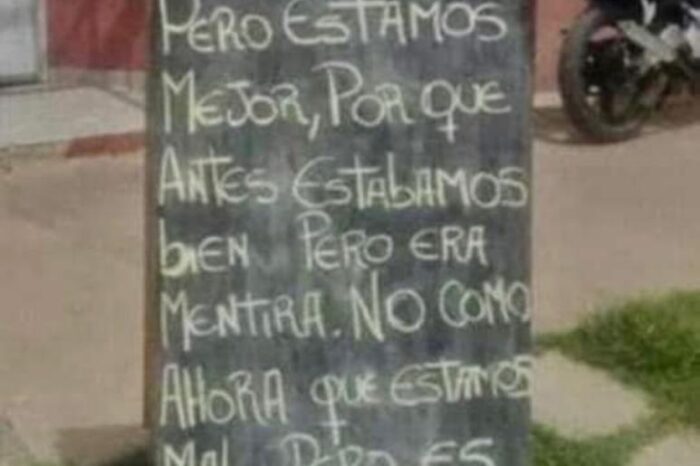 PERO ESTAMOS
MEJOR, POR QUE
ANTES ESTABAMOS
bIEN PERO ERA
MENTIRA. NO COMO
AHORA QUE ESTAMOS
MAL PERO ES